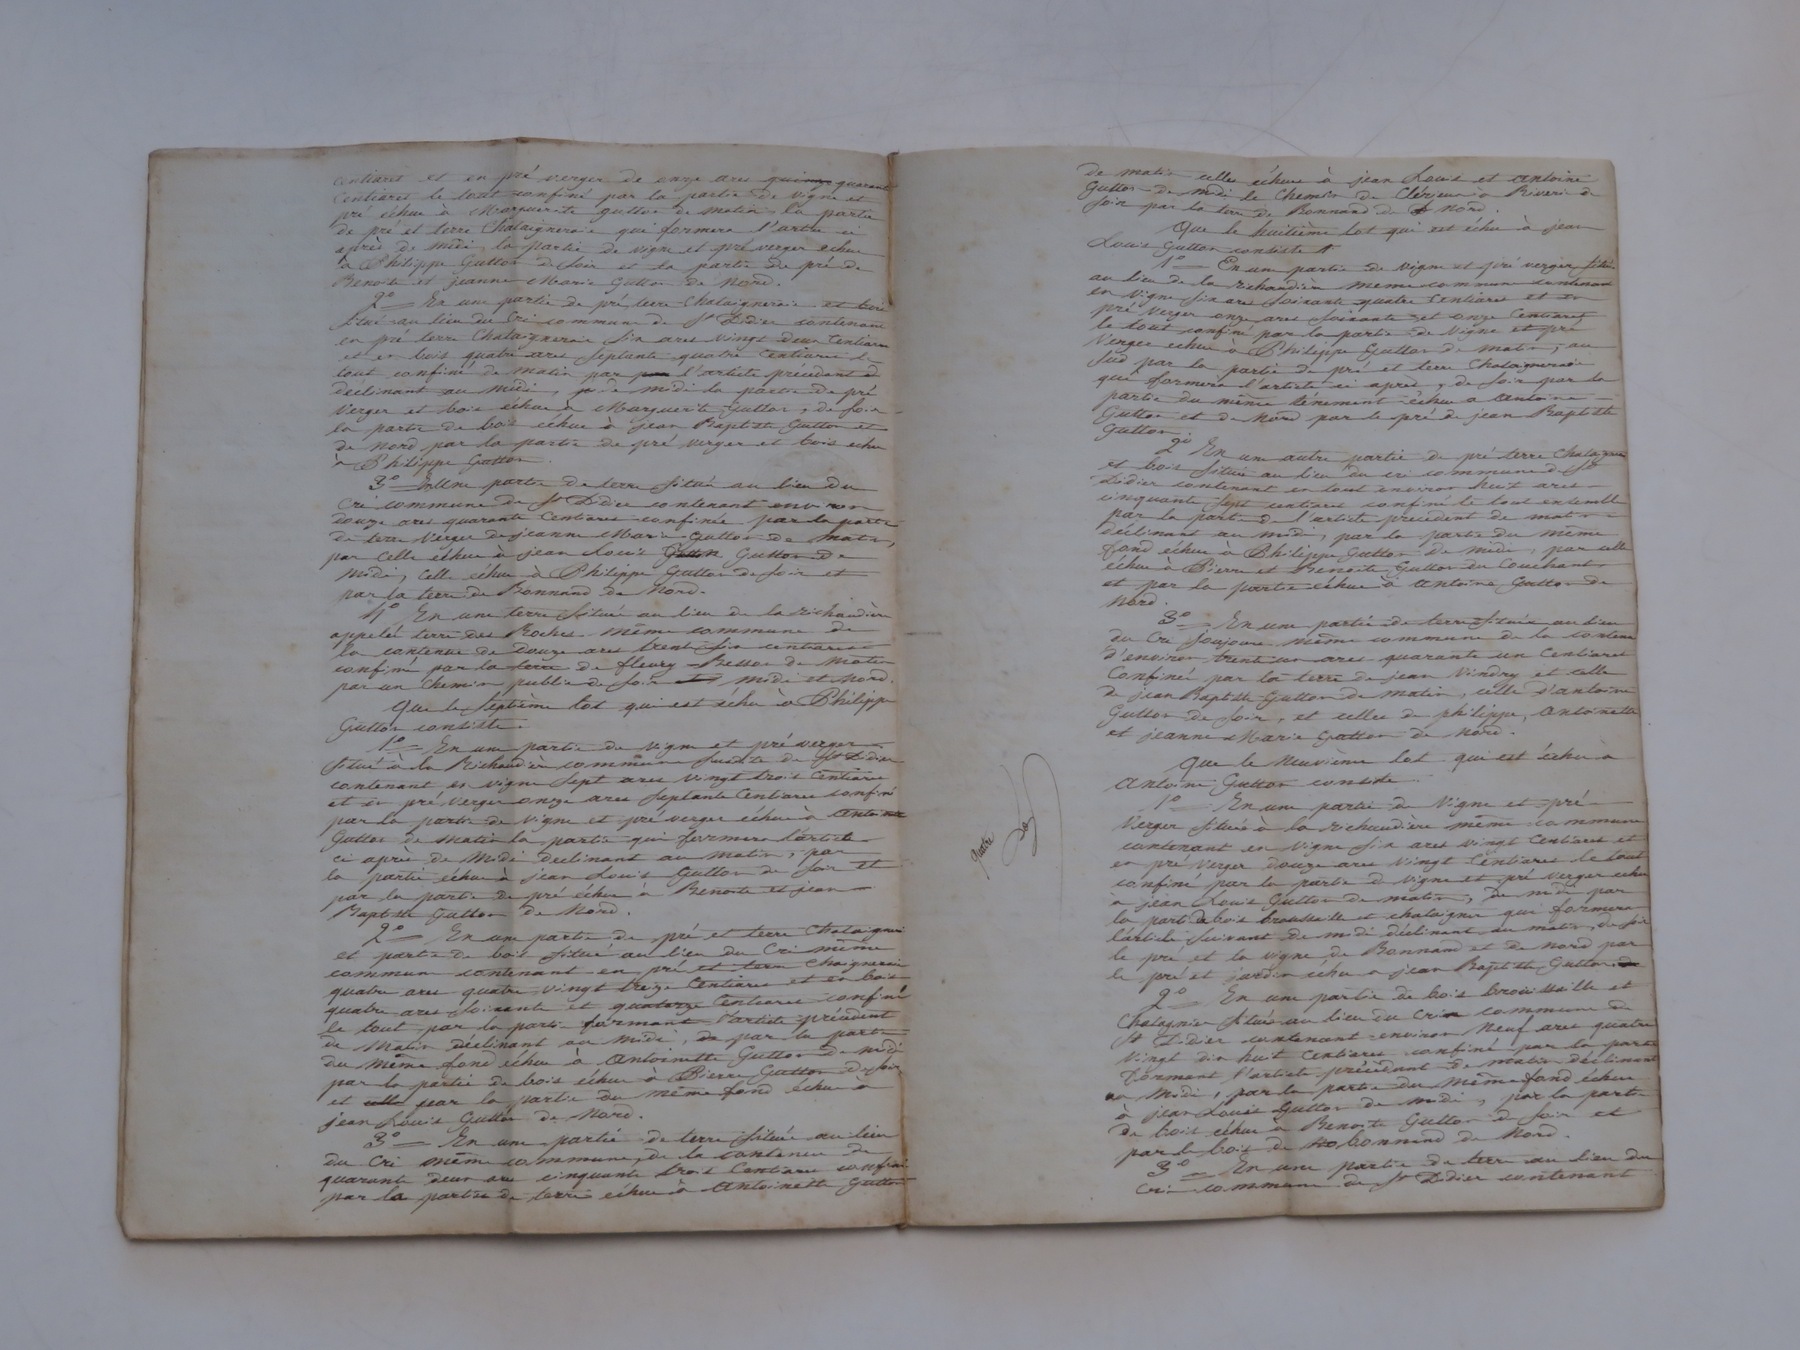 centiares et en pré verger de onze ares quarante
centiares le tout confiné par la partie de vigne et
pré échue à Marguerite Gutton de matin, la partie
de pré et terre Chataigneraie qui formera l'article ci
après de midi, la partie de vigne et pré verger echue
à Philippe Gutton de soir et la partie de pré de
Benoite et jeanne Marie Gutton de Nord.
2° En une partie de pré, terre Chataigneraie et bois
situé au lieu du Cri commune de St Didier contenant
en pré terre Chataigneraie six ares vingt deux Centiares
et en bois quatre ares septante quatre Centiares le
tout confiné de matin par l'article précédent
déclinant au midi, de midi la partie de pré
Verger et bois échue à Marguerite Gutton, de soir
la partie de bois échue à jean Baptiste Gutton et
de nord par la partie de pré verger et bois echue
à Philippe Gutton.
3° En Une partie de terre située au lieu du
Cri commune de St Didier contenant environ
douze ares quarante Centiares confinée par la partie
de terre Verger de jeanne Marie Gutton de matin,
par Celle échue à jean Louis Gutton de
Midi, Celle échue à Philippe Gutton de soir et
par la terre de Bonnand de Nord.
4° En une terre située au lieu de la richaudière
appelée terre des Roches même commune de
la contenue de douze ares trente six centiares
confiné par la terre de fleury Besson de matin
par un Chemin public de soir midi et Nord.
Que le septième lot qui est échu à Philippe
Gutton consiste.
1° En une partie de vigne et pré verger
situé à la Richaudière commune susdite de St Didier
contenant en vigne sept ares vingt trois Centiares
et en pré verger onze ares septante Centiares confiné
par la partie de vigne et pré verger échue à Antoinette
Gutton de matin la partie qui formera l'article
ci après de Midi déclinant au matin, par
la partie échue à jean Louis Gutton de soir et
par la partie de pré échue à Benoite et jean
Baptiste Gutton de Nord.
2° En une partie de pré et terre Chataigneraie
et partie de bois situé au lieu du Cri même
commune contenant en pré et terre Chaigneraie
quatre ares quatre vingt treize Centiares et en bois
quatre ares soixante et quatorze Centiares confiné
le tout par la partie formant l'article précédent
de Matin déclinant au midi, par la partie
du même fond échue à Antoinette Gutton de midi
par la partie de bois échue à Pierre Gutton de soir
et par la partie du même fond échue à
jean Louis Gutton de Nord.
3° En une partie de terre située au lieu
du Cri même commune, de la contenue de
quarante deux ares cinquante trois Centiares confiné
par la partie de terre échue à Antoinette Gutton
quatre
de matin celles échues à jean Louis et Antoine
Gutton de midi le Chemin de Clérieux à Riverie de
soir par la terre de Bonnand de Nord.
Que le huitième lot qui est échu à jean
Louis Gutton consiste
1° En une partie de vigne et pré verger située
au lieu de la richaudière meme commune contenant
en Vigne six ares soixante quatre Centiares et en
pré Verger onze ares soixante et onze Centiares
le tout confiné par la partie de vigne et pré
Verger echue à Philippe Gutton de matin, au
sud par la partie de pré et terre Chataigneraie
qui formera l'article ci après, de soir par la
partie du même tènement échue a Antoine
Gutton et de Nord par le pré de jean Baptiste
Gutton.
2° En une autre partie de pré terre Chataigneraie
et bois située au lieu du cri commune de St
Didier contenant en tout environ huit ares
cinquante sept centiares confiné le tout ensemble
par la partie de l'article precedent de matin
déclinant au midi, par la partie du même
fond échue à Philippe Gutton de midi, par celle
échue à Pierre et Benoite Gutton du Couchant
et par la partie échue à Antoine Gutton de
Nord.
3° En une partie de terre située au lieu
du Cri toujours même commune de la contenue
d'environ trente un ares quarante un Centiares
Confiné par la terre de jean Vindry et celle
de jean Baptiste Gutton de matin, celle d'antoine
Gutton de soir, et celles de philippe, Antoinette
et jeanne Marie Gutton de Nord.
Que le Neuvième lot qui est échu à
Antoine Gutton consiste
1° En une partie de Vigne et pré
Verger située à la richaudière même commune
contenant en Vigne six ares vingt Centiares et
en pré Verger douze ares Vingt Centiares le tout
confiné par la partie de vigne et pré verger echue
a jean Louis Gutton de matin, de midi par
la partie de bois broussaille et chataignier qui formera
l'article suivant de midi déclinant au matin, de soir
le pré et la vigne de Bonnand et de Nord par
le pré et jardin echu a jean Baptiste Gutton
2° En une partie de bois broussaille et
Chataignier située au lieu du Cri commune de
St Didier contenant environ Neuf ares quatre
Vingt dix huit Centiares confiné par la partie
formant l'article précédent de matin déclinant
au Midi, par la partie du même fond échue
à jean Louis Gutton de midi, par la partie
de bois échue à Benoite Gutton de soir et
par le bois de bonnand de Nord.
3° En une partie de terre au lieu du
Cri commune de St Didier contenant